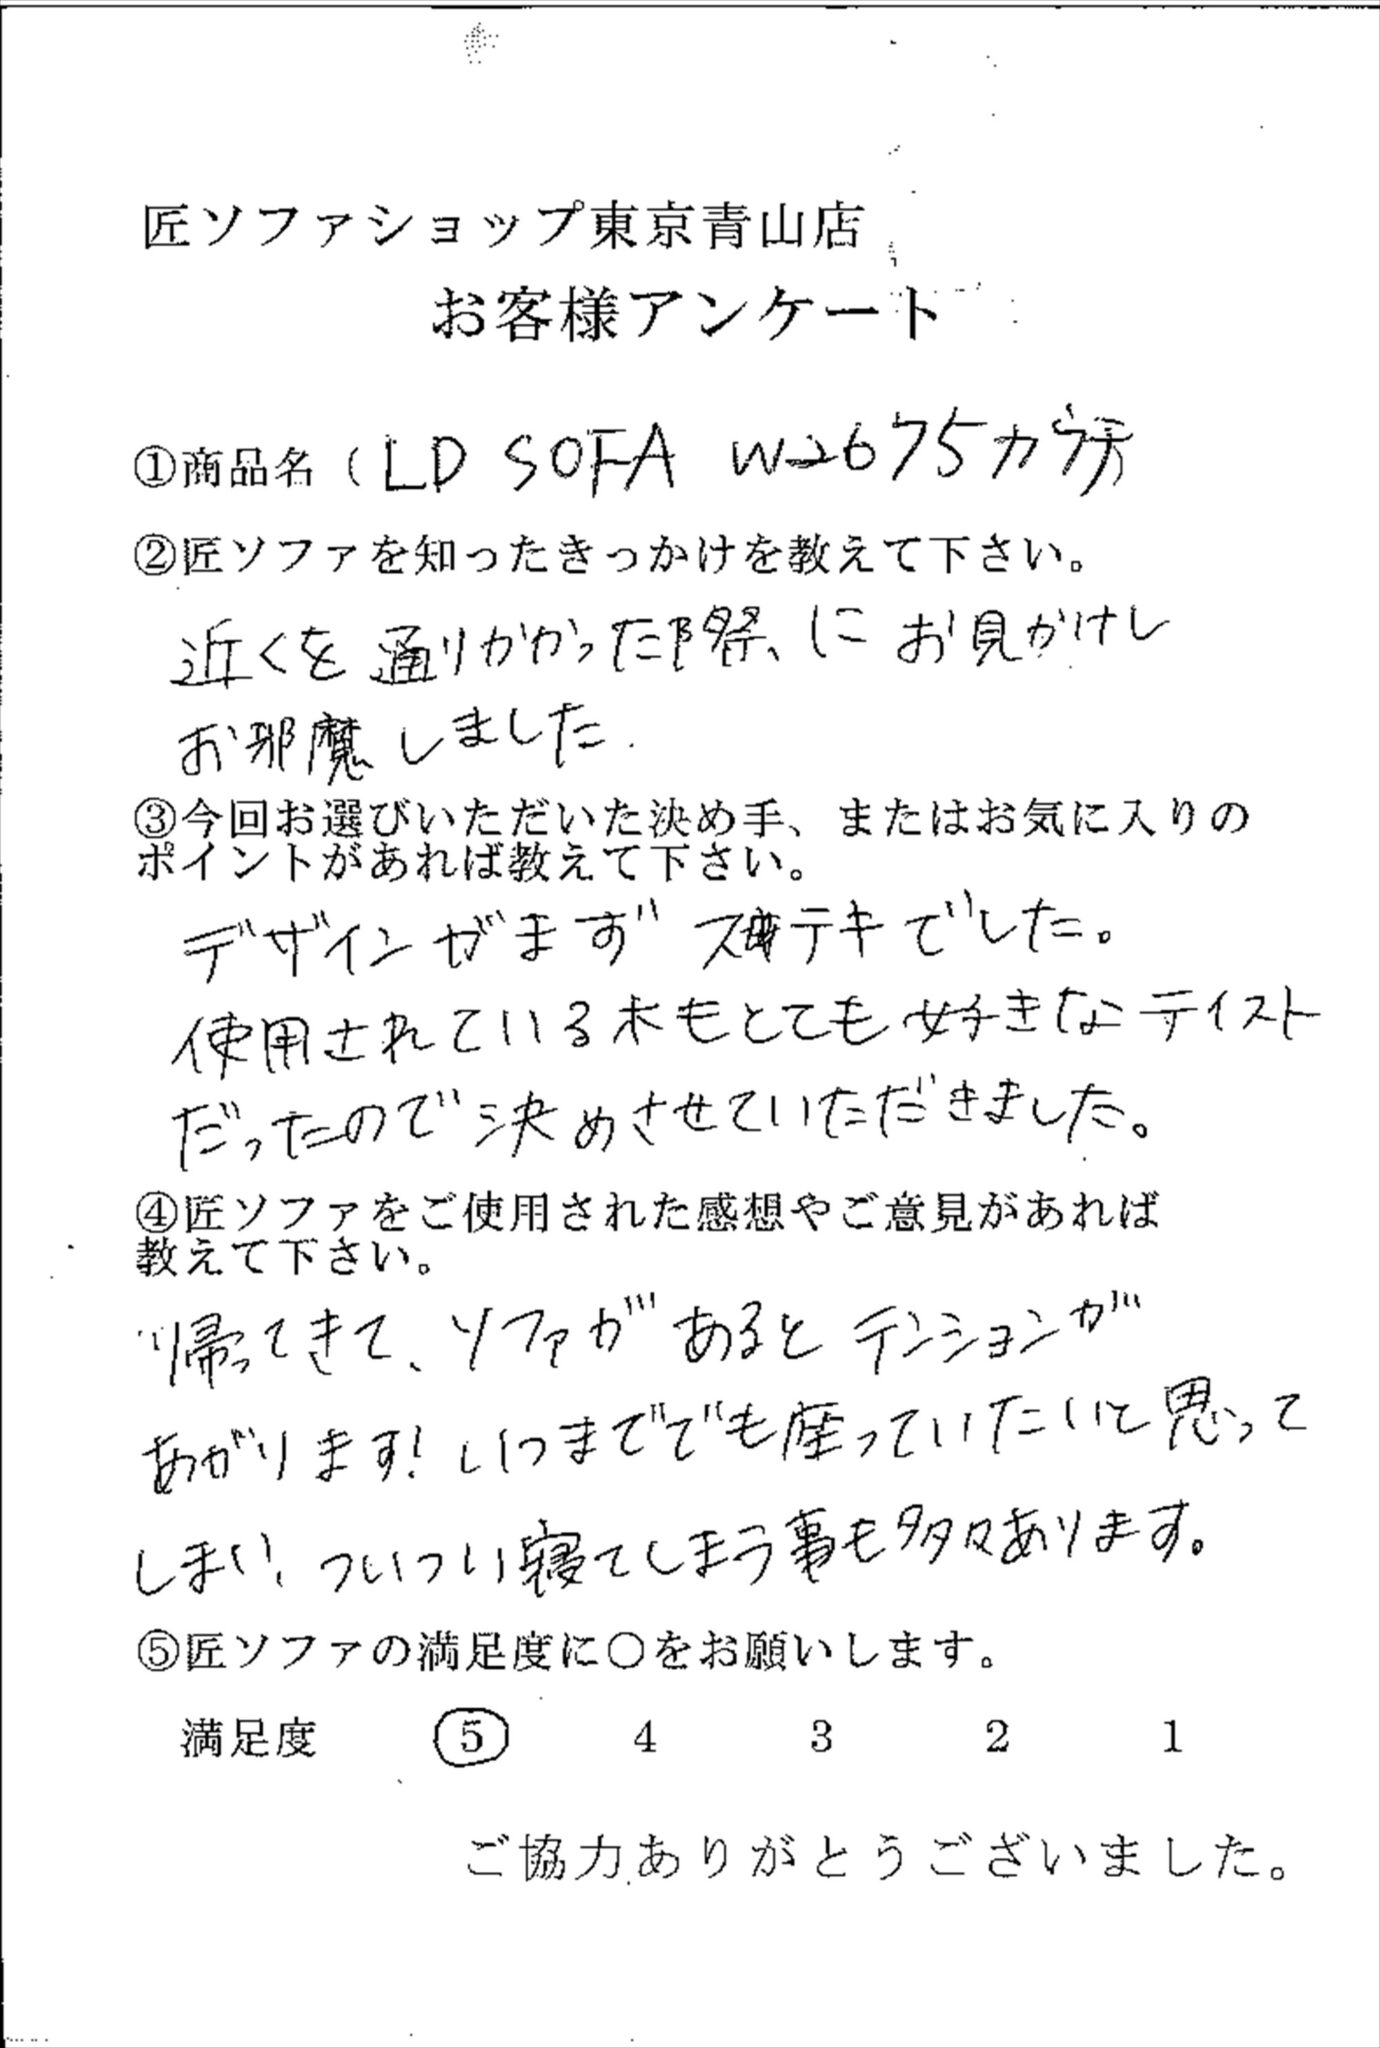 匠ソファショップ東京青山店
お客様アンケート
①商品名（LD SOFA W2675カウチ）
②匠ソファを知ったきっかけを教えて下さい。
近くを通りがかった際、にお見かけし
お邪魔しました.
③今回お選びいただいた決め手、またはお気に入りの
ポイントがあれば教えて下さい。
デザインがまず ステキでした。
使用されている木もとても好きなテイスト
だったので決めさせていただきました。
④匠ソファをご使用された感想やご意見があれば
教えて下さい。
帰ってきて、ソファがあるとテンションが
あがります!いつまででも座っていたいと思って
しまい、ついつい寝てしまう事も多々あります。
⑤匠ソファの満足度に○をお願いします。
満足度 5 4 3 2 1
ご協力ありがとうございました。